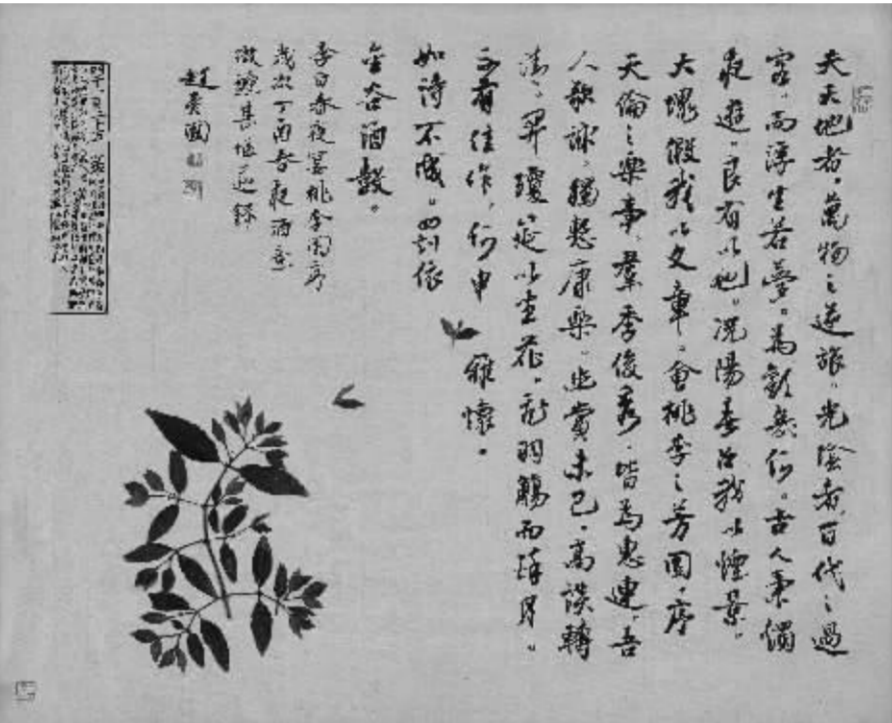 夫天地者。萬物之逆旅。光陰者。百代之過
客。而浮生若夢。為歡幾何。古人秉燭
夜遊。良有以也。況陽春召我以煙景。
大塊假我以文章。會桃李之芳園。序
天倫之樂事。羣季俊秀。皆為惠連。吾
人歌詠。獨慙康樂。幽賞未已。高談轉
清。開瓊筵以坐花。飛羽觴而醉月。
不有佳作。何申 雅懷。
如詩不成。罰依
金谷酒數。
李白春夜宴桃李園序
歲次丁酉春夜酒意
微醺
趙